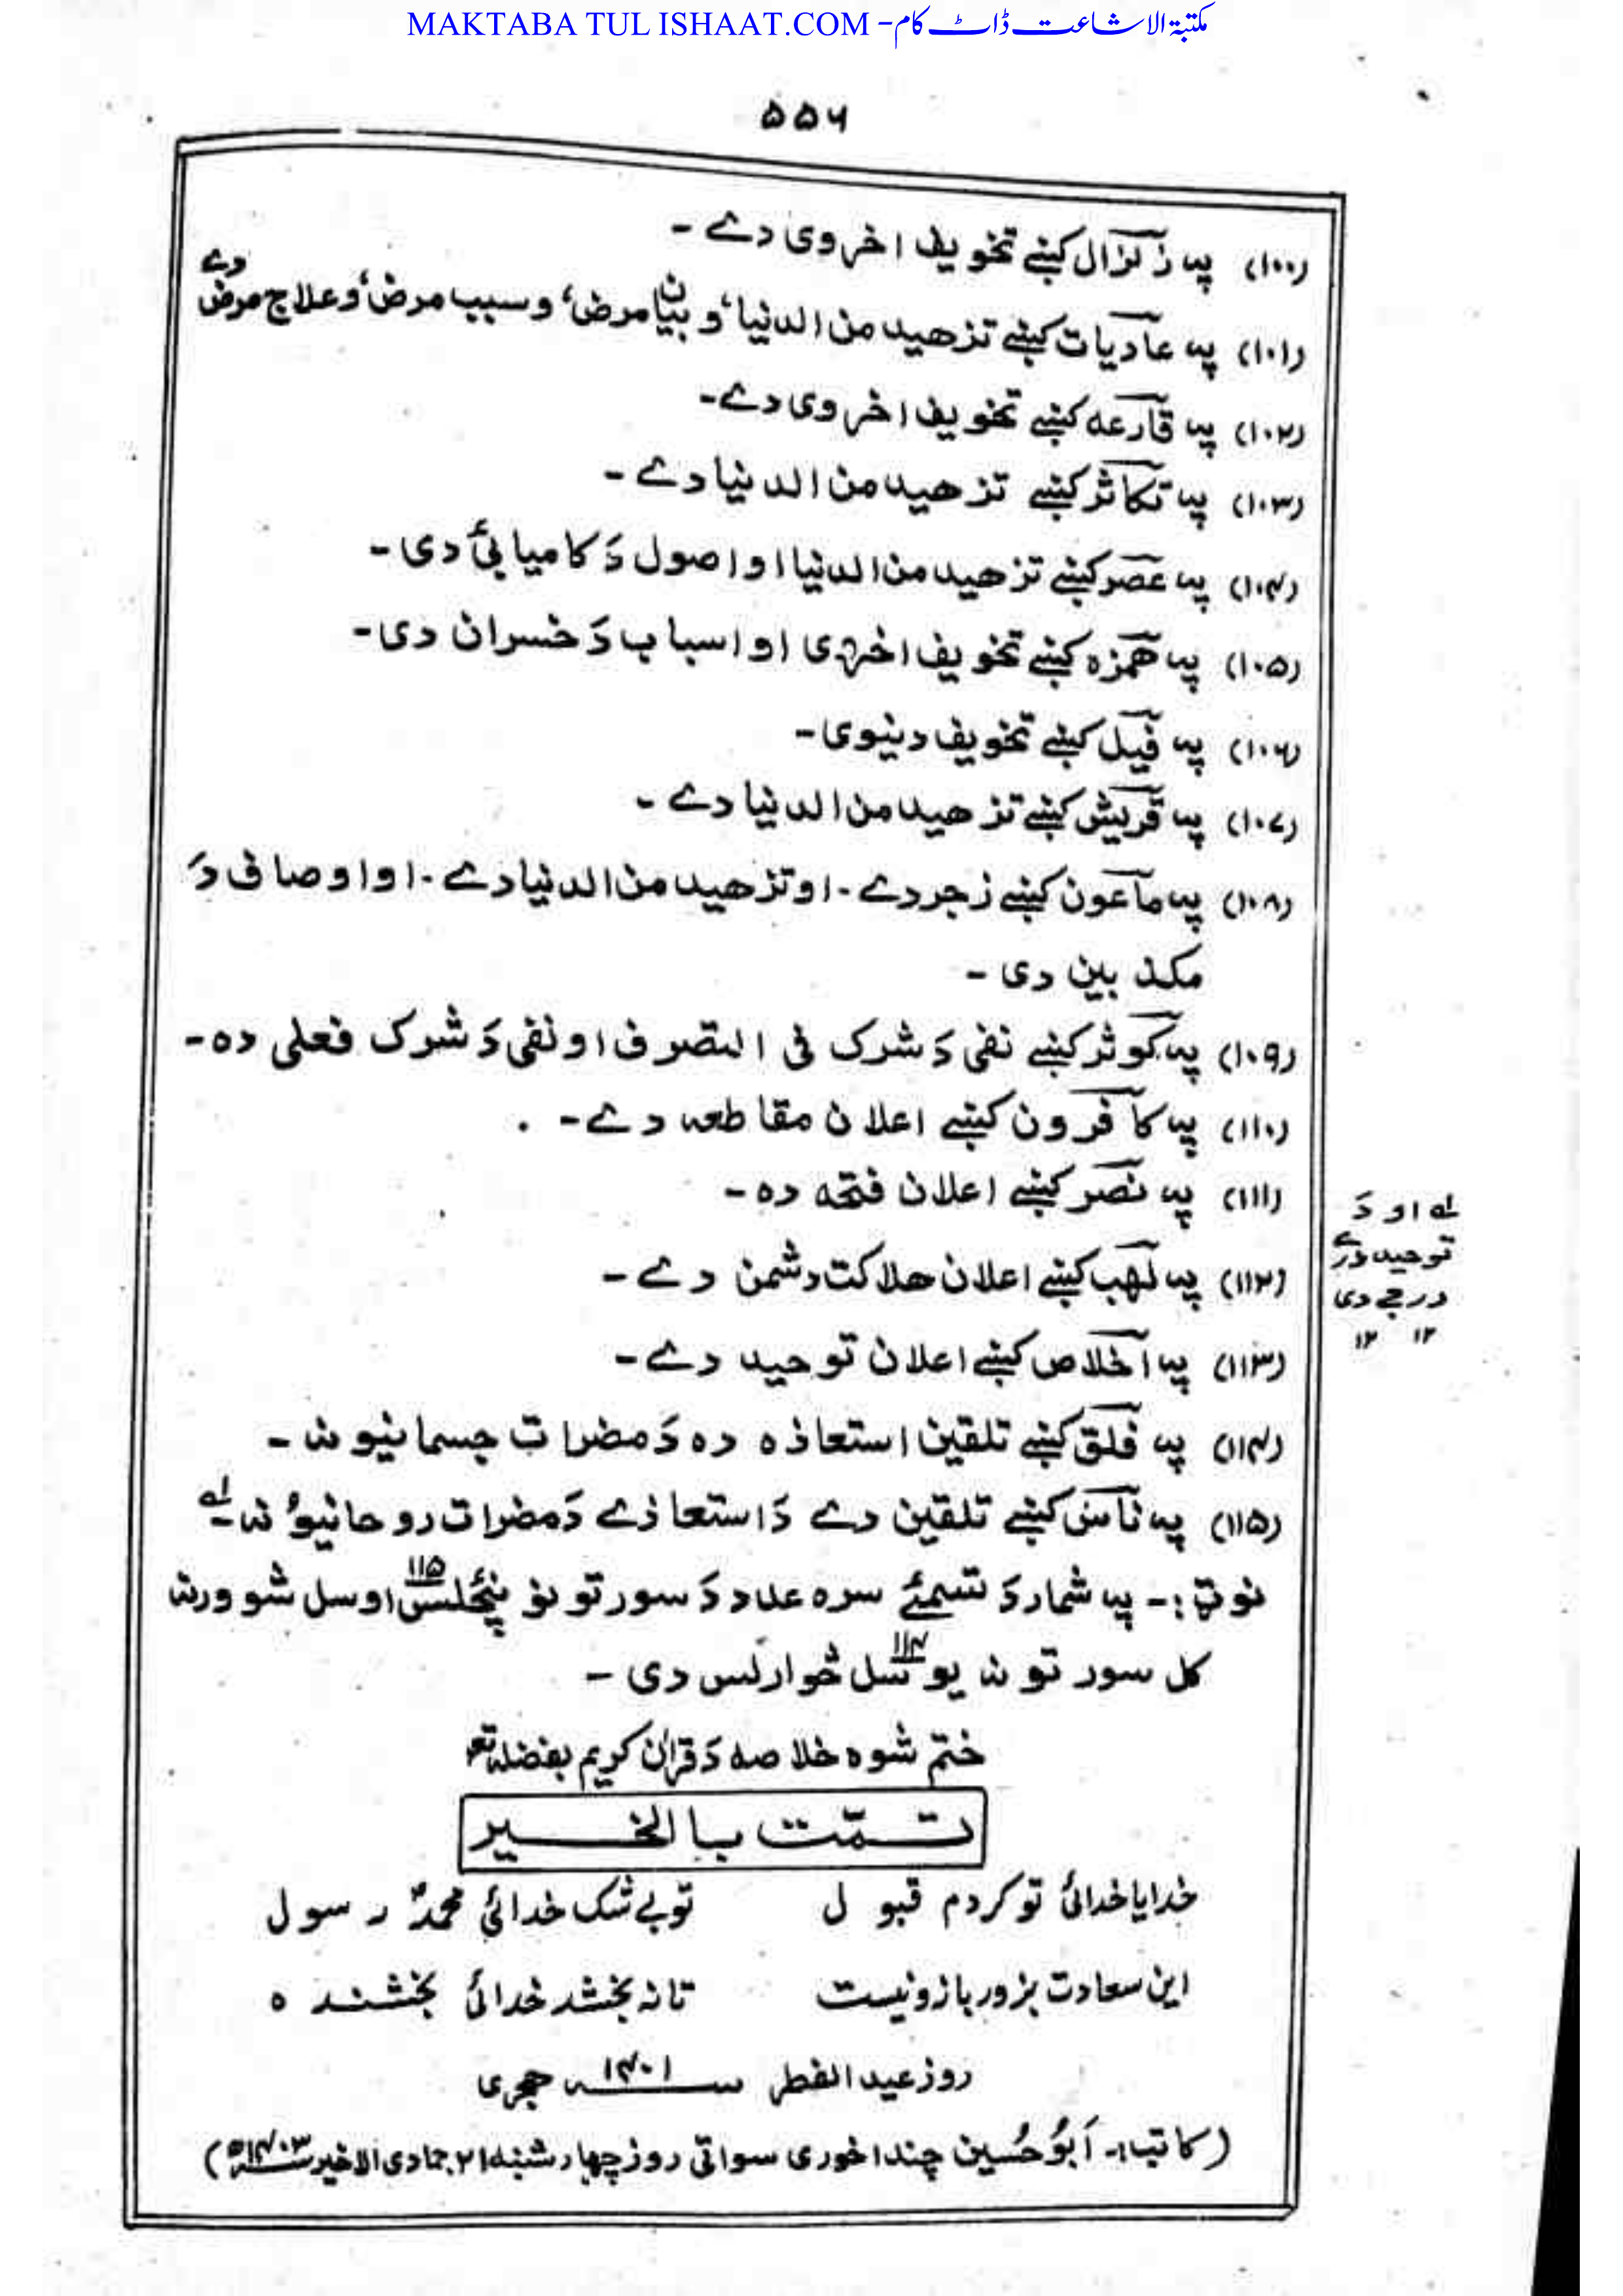 MAKTABA TUL ISHAAT.COM - مکتبۃ الاشاعت ڈاٹ کام
۵۵۶
(۱۰۰) په زلزال کښے تخویف اخروی دے ـ
(۱۰۱) په عادیات کښے تزهید من الدنیا، و بیان مرض، و سبب مرض، و علاج مرض دے
(۱۰۲) په قارعه کښے تخویف اخروی دے ـ
(۱۰۳) په تکاثر کښے تزهید من الدنیا دے ـ
(۱۰۴) په عصر کښے تزهید من الدنیا او اصول دَ کامیابئ دی ـ
(۱۰۵) په همزه کښے تخویف اخروی او اسباب دَ خسران دی ـ
(۱۰۶) په فیل کښے تخویف دنیوی ـ
(۱۰۷) په قریش کښے تزهید من الدنیا دے ـ
(۱۰۸) په ماعون کښے زجر دے ـ او تزهید من الدنیا دے ـ او اوصاف دَ
مکذبین دی ـ
(۱۰۹) په کوثر کښے نفی دَ شرک فی التصرف او نفی دَ شرک فعلی ده ـ
(۱۱۰) په کافرون کښے اعلان مقاطعه دے ـ
(۱۱۱) په نصر کښے اعلان فتحه ده ـ
(۱۱۲) په لهب کښے اعلان هلاکت دشمن دے ـ
(۱۱۳) په اخلاص کښے اعلان توحید دے ـ
(۱۱۴) په فلق کښے تلقین استعاذه ده دَ مضرات جسمانیو نه ـ
(۱۱۵) په ناس کښے تلقین دے دَ استعاذے دَ مضرات روحانیو نه ـ لے
لے او دَ
توحید درے
درجے دی
۱۲ ۱۲
نوټ :ـ په شمار دَ تسمئے سره عدد دَ سورتونو پنځلس ۱۱۵ او سل شو ورنه
کل سورتونه یو سل څوارلس ۱۱۴ دی ـ
ختم شوه خلاصه دَ قرآن کریم بفضله تع
تمّت بالخیر
خدایا خدائی تو کردم قبول تو بے شک خدائی محمدؐ رسول
این سعادت بزور بازو نیست تا نه بخشد خدائی بخشنده
روز عید الفطر سنه ۱۴۰۱ هجری
(کاتب :ـ اَبُو حُسین چنداخوری سواتی روز چهار شنبه ۲۱ جمادی الاخیر سنه ۱۴۰۳ھ)